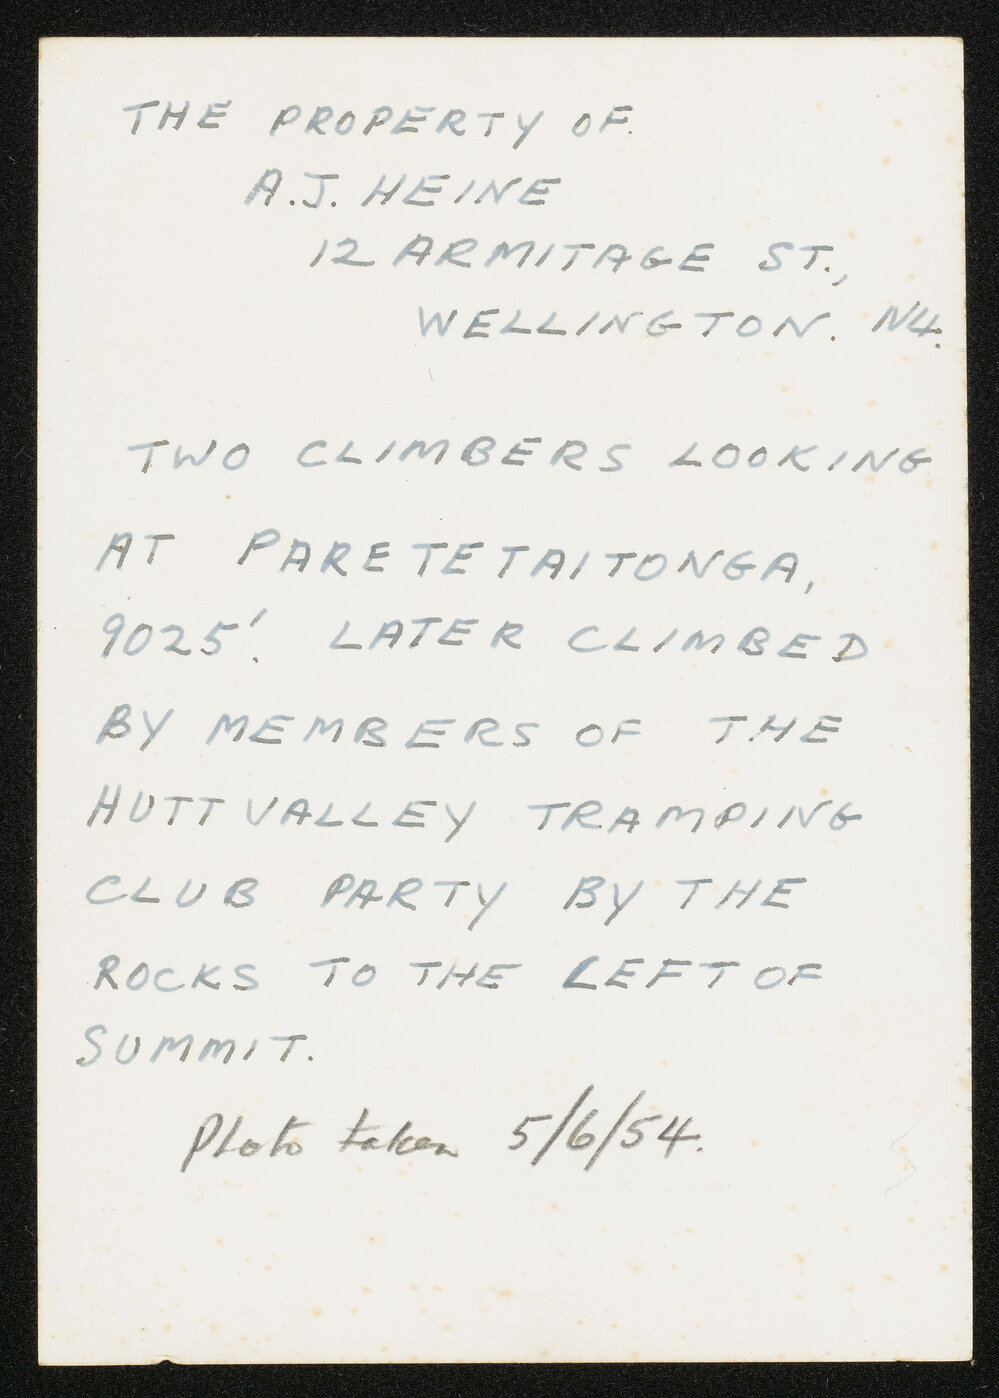 THE PROPERTY OF.
A.J. HEINE
12 ARMITAGE ST.,
WELLINGTON. N4.
TWO CLIMBERS LOOKING
AT PARETETAITONGA,
9025'. LATER CLIMBED
BY MEMBERS OF THE
HUTT VALLEY TRAMPING
CLUB PARTY BY THE
ROCKS TO THE LEFT OF
SUMMIT.
Photo taken 5/6/54.